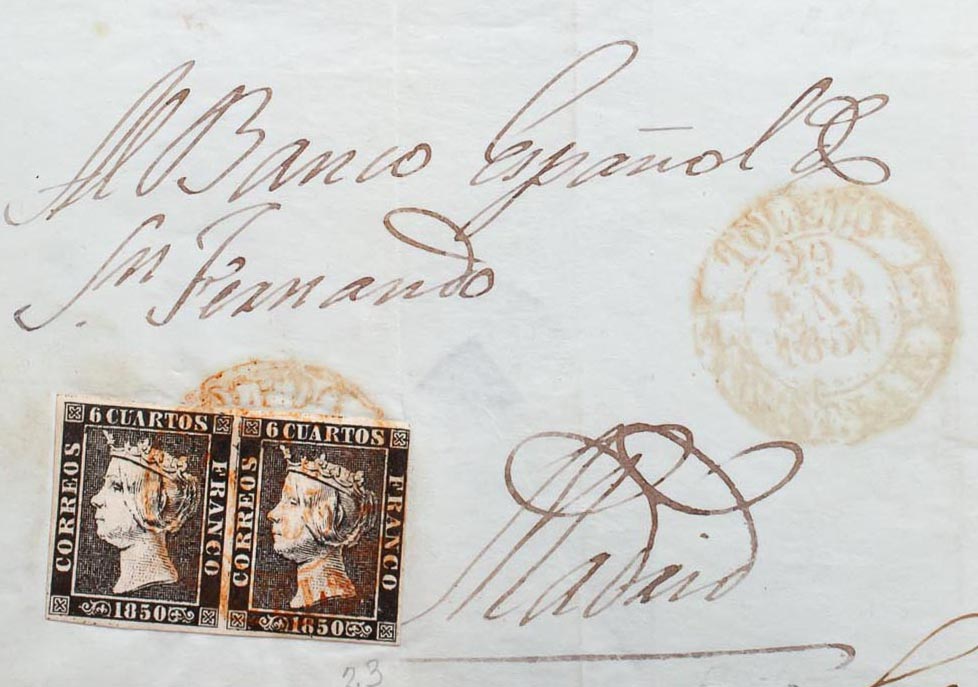 Al Banco Español de
Sn. Fernando
TORREDONJ
29
1850
6 CUARTOS
CORREOS
FRANCO
1850
6 CUARTOS
CORREOS
FRANCO
1850
Madrid
23